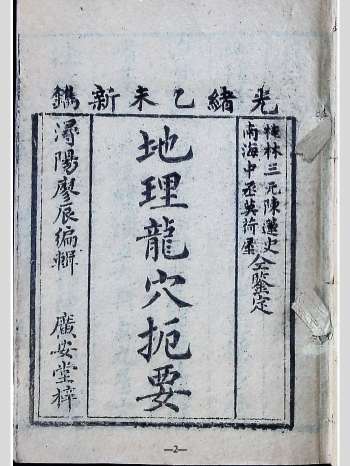 光緒乙未新鐫
桂林三元陳蓮史
南海中丞吳荷屋
仝鑒定
地理龍穴扼要
潯陽廖辰編輯
廣安堂梓
—2—